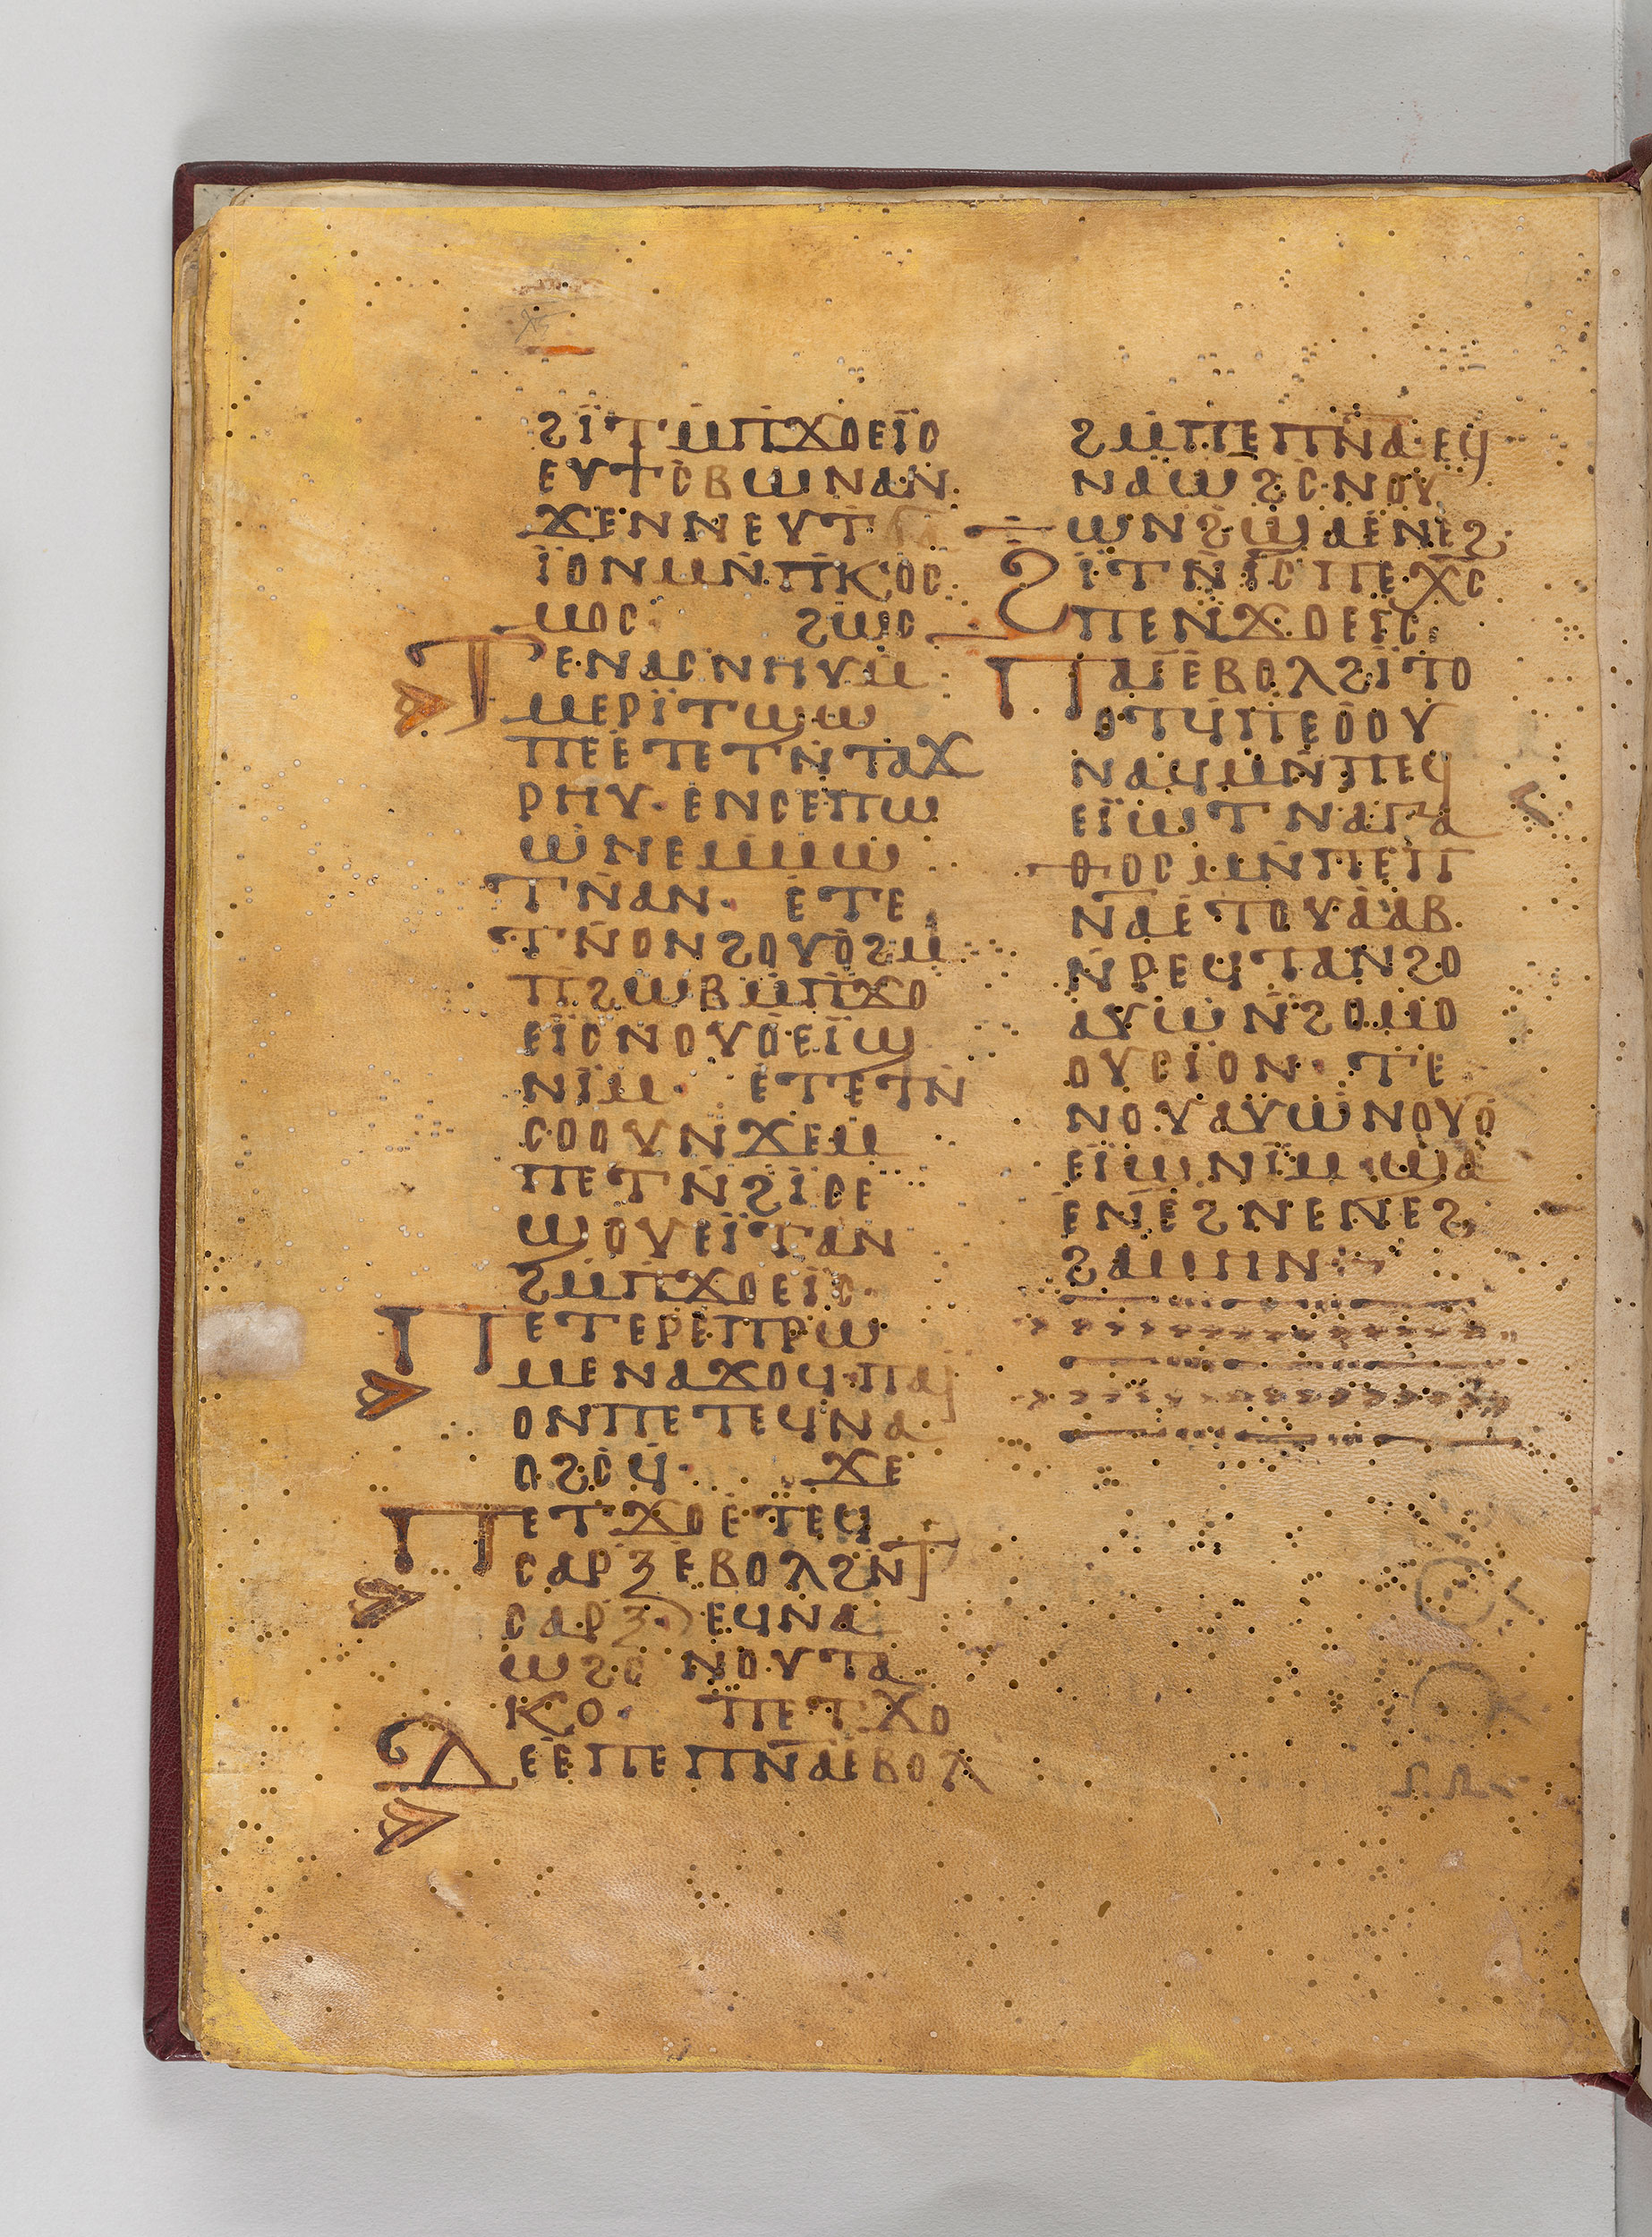 ϨΪΤⲘ̀ⲠϪⲞⲈΪⲤ
ⲈⲨⲦⲤⲂⲰⲚⲀⲚ
ϪⲈⲚⲚⲈⲨⲦ
ΪⲞⲚⲘⲚ̀Ⲡ̀ⲔⲞⲤ
ⲘⲞⲤ· ϨⲰⲤ
ⲦⲈⲚⲀⲤⲚⲎⲨⲘ̀
ⲘⲈⲢΪⲦϢⲰ
ⲠⲈⲈ̀ⲦⲈⲦⲚ̀ⲦⲀϪ
ⲢⲎⲨ· ⲈⲚⲤⲈⲠⲰ
ⲰⲚⲈⲘ̀ⲘⲰ
ⲦⲚ̀ⲀⲚ· Ⲉ̀ⲦⲈ
ⲦⲚ̀ⲞⲚϨⲞⲨⲞ̀ϨⲘ̀
ⲠϨⲰⲂⲘ̀ⲠϪⲞ
ⲈΪⲤⲚⲞⲨⲞ̀ⲈΪϢ
ⲚΪⲘ· Ⲉ̀ⲦⲈⲦⲚ̀
ⲤⲞⲞⲨⲚ̀ϪⲈⲘ̀
ⲠⲈⲦⲚ̀ϨΪⲤⲈ
ϢⲞⲨⲈΪⲦⲀⲚ
ϨⲘ̀ⲠϪⲞⲈΪⲤ·
ⲠⲈⲦⲈⲢⲈⲠⲢⲰ
ⲘⲈⲚⲀϪⲞϤ·ⲠⲀΪ
ⲞⲚⲠⲈⲦⲈϤⲚⲀ
ⲞϨⲤϤ̀· ϪⲈ
ⲠⲈⲦϪⲞⲈ̀ⲦⲈϤ
ⲤⲀⲢⲜⲈ̀ⲂⲞⲖϨⲚ̀Ⲧ
ⲤⲀⲢⲜ· ⲈϤⲚⲀ
ⲰϨⲤ ⲚⲞⲨⲦⲀ
ⲔⲞ· ⲠⲈⲦϪⲞ
ⲆⲈⲈ̀ⲠⲈⲠⲚ̅ⲀⲈ̀ⲂⲞⲖ
ϨⲘ̀ⲠⲈⲠⲚ̅Ⲁ·ⲈϤ
ⲚⲀⲰϨⲤ̀ⲚⲞⲨ
ⲰⲚϨ̀ϢⲀⲈ̀ⲚⲈϨ·
ϨΪⲦⲚ̀Ⲓ̅Ⲥ̅ⲠⲈⲬ̅Ⲥ̅
ⲠⲈⲚϪⲞⲈΪⲤ·
ⲠⲀΪⲈ̀ⲂⲞⲖϨΪⲦⲞ
ⲞⲦϤ̀ⲠⲈⲞ̀ⲞⲨ
ⲚⲀϤⲘⲚ̀ⲠⲈϤ
ⲈΪⲰⲦⲚⲀⲄⲀ
ⲐⲞⲤⲘⲚ̀ⲠⲈⲠ
Ⲛ̅ⲀⲈ̀ⲦⲞⲨⲀ̀ⲀⲂ·
Ⲛ̀ⲢⲈϤⲦⲀⲚϨⲞ
ⲀⲨⲰⲚ̀ϨⲞⲘⲞ
ⲞⲨⲤΪⲞⲚ· ⲦⲈ
ⲚⲞⲨⲀⲨⲰⲚⲞⲨⲞ̀
ⲈΪϢⲚΪⲘ·ϢⲀ
Ⲉ̀ⲚⲈϨⲚⲈⲚⲈϨ
ϨⲀⲘⲎⲚ: